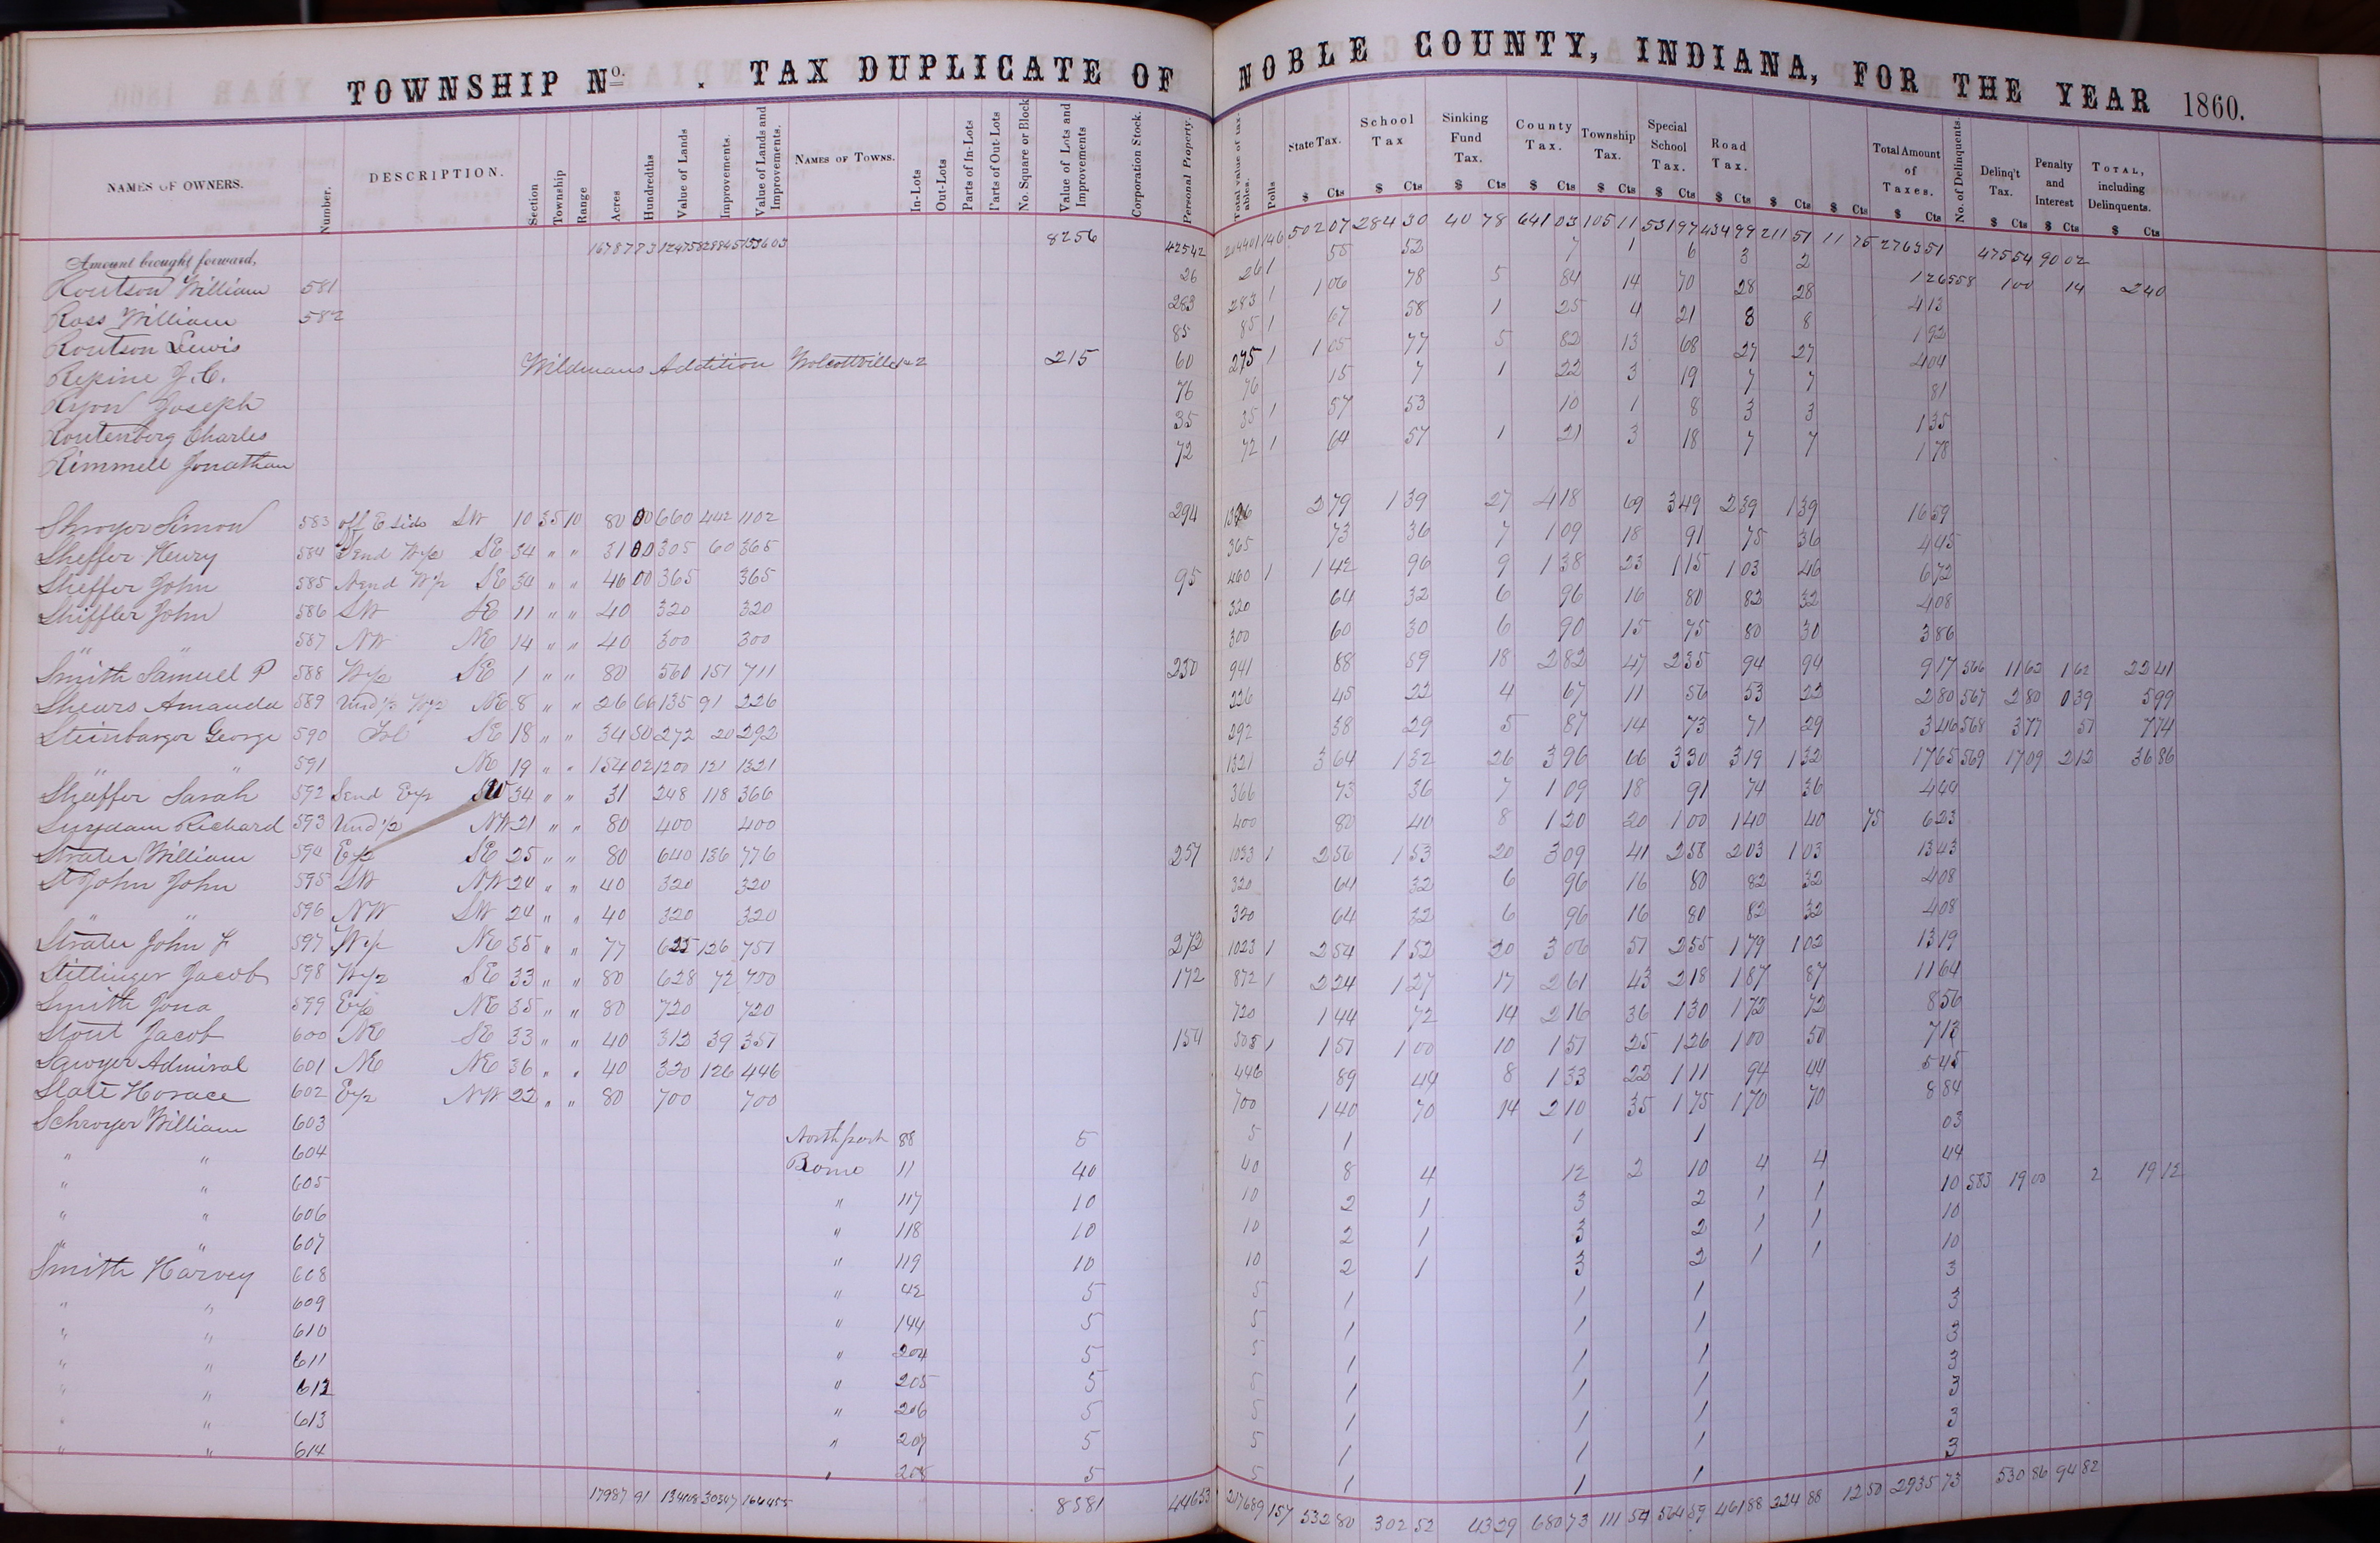 TOWNSHIP No. . TAX DUPLICATE OF NOBLE COUNTY, INDIANA, FOR THE YEAR 1860.
NAMES OF OWNERS. Number. DESCRIPTION. Section Township Range Acres Hundredths Value of Lands Improvements. Value of Lands and Improvements. NAMES OF TOWNS. In-Lots Out-Lots Parts of In-Lots Parts of Out-Lots No. Square or Block Value of Lots and Improvements Corporation Stock. Personal Property. Total value of taxables. Polls State Tax. School Tax Sinking Fund Tax. County Tax. Township Tax. Special School Tax. Road Tax. Total Amount of Taxes. No. of Delinquents. Delinq't Tax. Penalty and Interest TOTAL, including Delinquents.
$ Cts $ Cts $ Cts $ Cts $ Cts $ Cts $ Cts $ Cts $ Cts $ Cts $ Cts $ Cts $ Cts
Amount brought forward, 16787 73 124758 28845 153603 8256 42542 204401 146 502 07 284 30 40 78 641 03 105 11 531 97 434 99 211 51 11 75 2763 51 475 54 90 02
Routson William 581 26 26 1 55 53 7 1 6 3 2 1 26 558 1 00 14 2 40
Ross William 582 283 283 1 1 06 78 5 84 14 70 28 28 4 13
Routson Lewis 85 85 1 67 58 1 25 4 21 8 8 1 92
Repine J. C. Wildmans Addition Wolcottville 1 & 2 215 60 275 1 1 05 77 5 82 13 68 27 27 4 04
Ryon Joseph 76 76 15 7 1 22 3 19 7 7 81
Routenberg Charles 35 35 1 57 53 10 1 8 3 3 1 35
Rimmell Jonathan 72 72 1 64 57 1 21 3 18 7 7 1 78
Shroyer Simon 583 off E side SW 10 35 10 80 00 660 442 1102 294 1396 2 79 1 39 27 4 18 69 3 49 2 39 1 39 16 59
Sheffer Henry 584 Send W½ SE 34 " " 31 00 305 60 365 365 73 36 7 1 09 18 91 75 36 4 45
Sheffer John 585 Nend W½ SE 34 " " 46 00 365 365 95 460 1 1 42 96 9 1 38 23 1 15 1 03 46 6 72
Shiffler John 586 SW SE 11 " " 40 320 320 320 64 32 6 96 16 80 82 32 4 08
" " 587 NW NE 14 " " 40 300 300 300 60 30 6 90 15 75 80 30 3 86
Smith Samuel P 588 W½ SE 1 " " 80 560 151 711 230 941 88 59 18 2 82 47 2 35 94 94 9 17 566 11 62 1 62 22 41
Shears Amanda 589 Und ½ W½ NE 8 " " 26 66 135 91 226 226 45 22 4 67 11 56 53 22 2 80 567 2 80 0 39 5 99
Steinbarger George 590 SE 18 " " 34 50 272 20 292 292 38 29 5 87 14 73 71 29 3 46 568 3 77 51 7 74
" " 591 NE 19 " " 154 02 1200 121 1321 1321 3 64 1 32 26 3 96 66 3 30 3 19 1 32 17 65 569 17 09 2 12 36 86
Shaffer Sarah 592 Send E½ SW 34 " " 31 248 118 366 366 73 36 7 1 09 18 91 74 36 4 44
Suydam Richard 593 Und ½ NW 21 " " 80 400 400 400 80 40 8 1 20 20 1 00 1 40 40 75 6 23
Strater William 594 E½ SE 25 " " 80 640 136 776 257 1033 1 2 56 1 53 20 3 09 41 2 58 2 03 1 03 13 43
St John John 595 SW NW 24 " " 40 320 320 320 64 32 6 96 16 80 82 32 4 08
" " 596 NW SW 24 " " 40 320 320 320 64 32 6 96 16 80 82 32 4 08
Strater John F 597 W½ NE 35 " " 77 625 126 751 272 1023 1 2 54 1 52 20 3 06 51 2 55 1 79 1 02 13 19
Stillinger Jacob 598 W½ SE 33 " " 80 628 72 700 172 872 1 2 24 1 27 17 2 61 43 2 18 1 87 87 11 64
Smith Jona 599 E½ NE 35 " " 80 720 720 720 1 44 72 14 2 16 36 1 30 1 72 72 8 56
Stout Jacob 600 NE SE 33 " " 40 312 39 351 154 505 1 1 51 1 00 10 1 51 25 1 26 1 00 50 7 13
Sawyer Admiral 601 NE NE 36 " " 40 320 126 446 446 89 44 8 1 33 22 1 11 94 44 5 45
Slate Horace 602 E½ NW 22 " " 80 700 700 700 1 40 70 14 2 10 35 1 75 1 70 70 8 84
Schroyer William 603 Northport 88 5 5 1 1 1 03
" " 604 Rome 11 40 40 8 4 12 2 10 4 4 44
" " 605 " 117 10 10 2 1 3 2 1 1 10 583 19 00 2 19 12
" " 606 " 118 10 10 2 1 3 2 1 1 10
" " 607 " 119 10 10 2 1 3 2 1 1 10
Smith Harvey 608 " 42 5 5 1 1 1 3
" " 609 " 144 5 5 1 1 1 3
" " 610 " 204 5 5 1 1 1 3
" " 611 " 205 5 5 1 1 1 3
" " 612 " 206 5 5 1 1 1 3
" " 613 " 207 5 5 1 1 1 3
" " 614 " 208 5 5 1 1 1 3
17987 91 134108 30347 164455 8581 44653 217689 157 532 80 302 52 43 29 680 73 111 54 564 59 461 88 224 88 12 50 2935 73 530 86 94 82